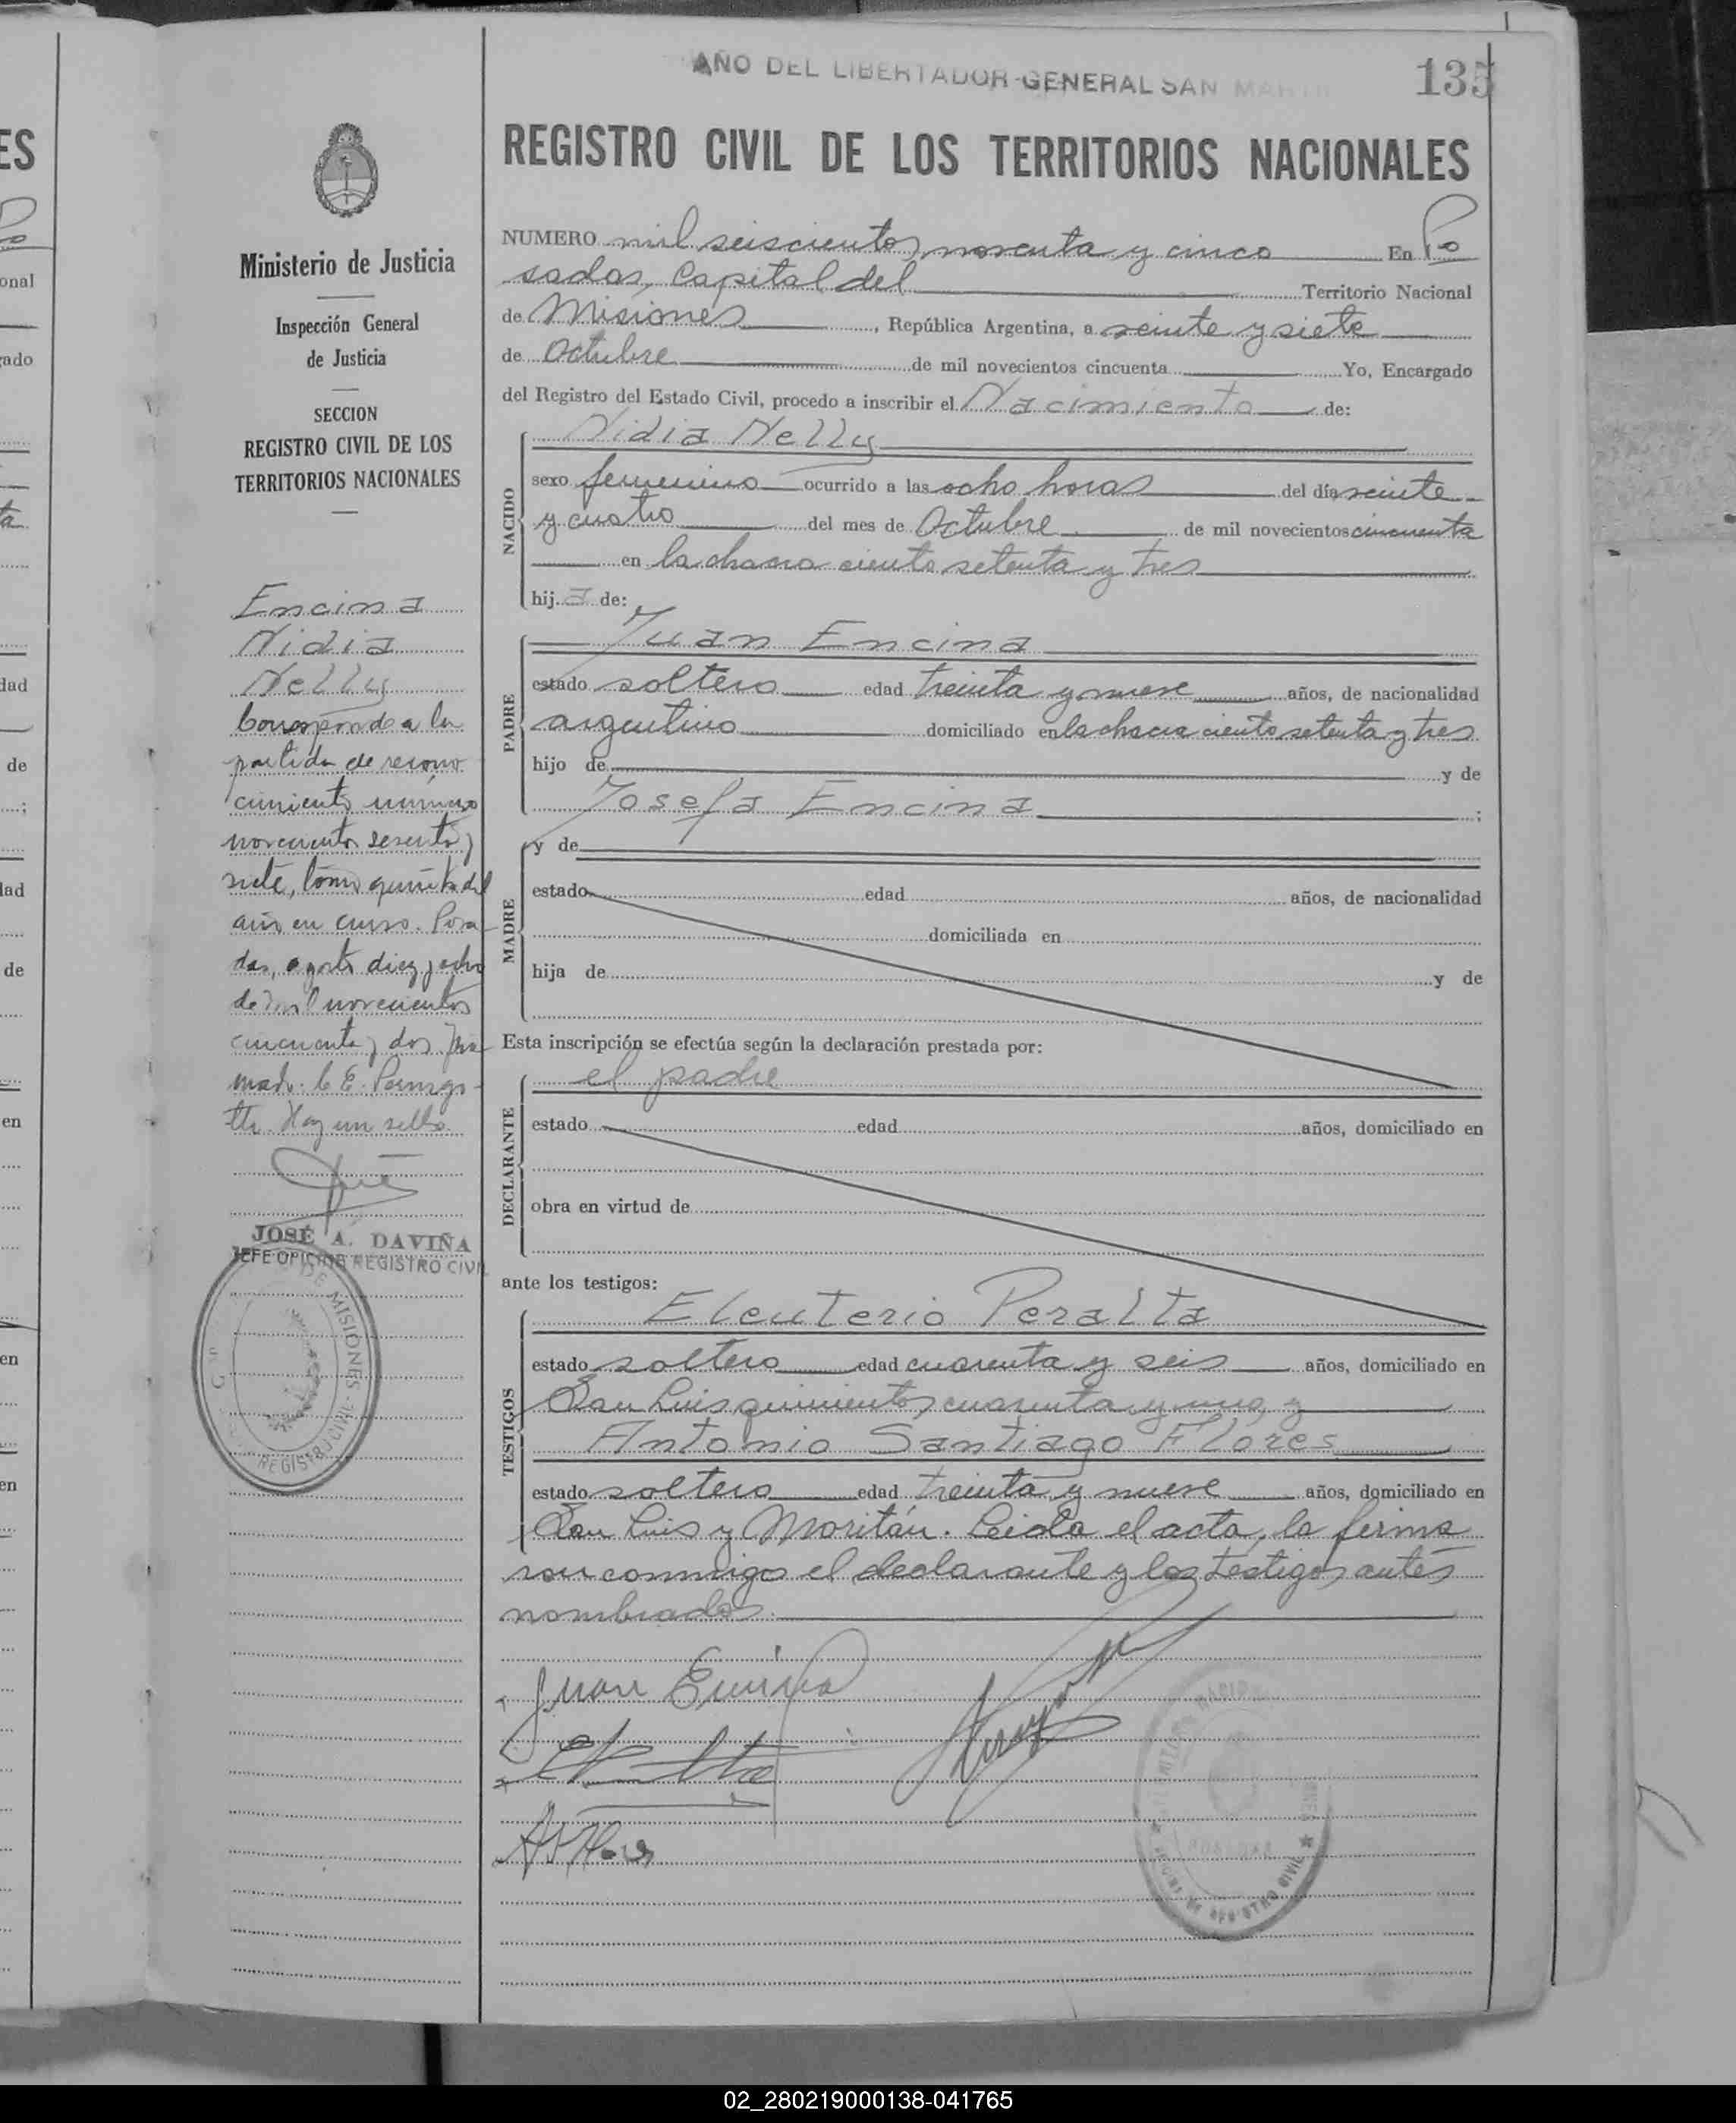 AÑO DEL LIBERTADOR GENERAL SAN MARTIN
135
REGISTRO CIVIL DE LOS TERRITORIOS NACIONALES
Ministerio de Justicia
Inspección General
de Justicia
SECCION
REGISTRO CIVIL DE LOS
TERRITORIOS NACIONALES
Encina
Nidia
Nelly
Corresponde a la
partida de recono
cimiento número
novecientos sesenta y
siete, tomo quinto del
año en curso. Posa-
das, agosto diez y ocho
de mil novecientos
cincuenta y dos. Fir
mado: C. E.
Hay un sello
JOSÉ A. DAVIÑA
JEFE OFICINA REGISTRO CIVIL
DE MISIONES
REGISTRO CIVIL
NUMERO mil seiscientos noventa y cinco En Po
sadas, Capital del Territorio Nacional
de Misiones, República Argentina, a veinte y siete
de Octubre de mil novecientos cincuenta Yo, Encargado
del Registro del Estado Civil, procedo a inscribir el Nacimiento de:
Nidia Nelly
NACIDO
sexo femenino ocurrido a las ocho horas del día veinte
y cuatro del mes de Octubre de mil novecientos cincuenta
en la chacra ciento setenta y tres
hija de:
PADRE
Juan Encina
estado soltero edad treinta y nueve años, de nacionalidad
argentino domiciliado en la chacra ciento setenta y tres
hijo de y de
Josefa Encina ;
MADRE
y de
estado edad años, de nacionalidad
domiciliada en
hija de y de
Esta inscripción se efectúa según la declaración prestada por:
DECLARANTE
el padre
estado edad años, domiciliado en
obra en virtud de
ante los testigos:
TESTIGOS
Eleuterio Peralta
estado soltero edad cuarenta y seis años, domiciliado en
San Luis quinientos cuarenta y uno, y
Antonio Santiago Flores
estado soltero edad treinta y nueve años, domiciliado en
San Luis y Moritán. Leida el acta, la firma
ron conmigo el declarante y los testigos antes
nombrados.
Juan Encina
02_280219000138-041765